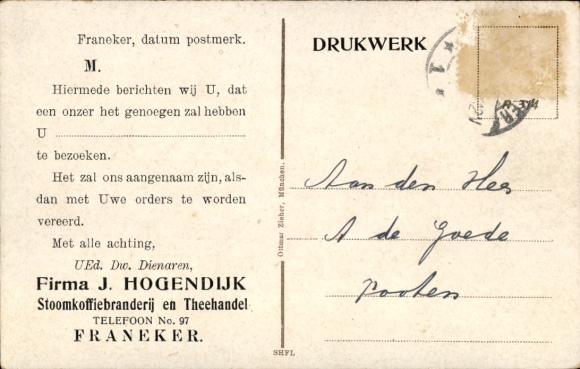 Franeker, datum postmerk.
M.
Hiermede berichten wij U, dat
een onzer het genoegen zal hebben
U
te bezoeken.
Het zal ons aangenaam zijn, als-
dan met Uwe orders te worden
vereerd.
Met alle achting,
UEd. Dw. Dienaren,
Firma J. HOGENDIJK
Stoomkoffiebranderij en Theehandel
TELEFOON No. 97
FRANEKER.
Ottmar Zieher, München.
SHFL
DRUKWERK
1
Aan den Heer
A de Goede